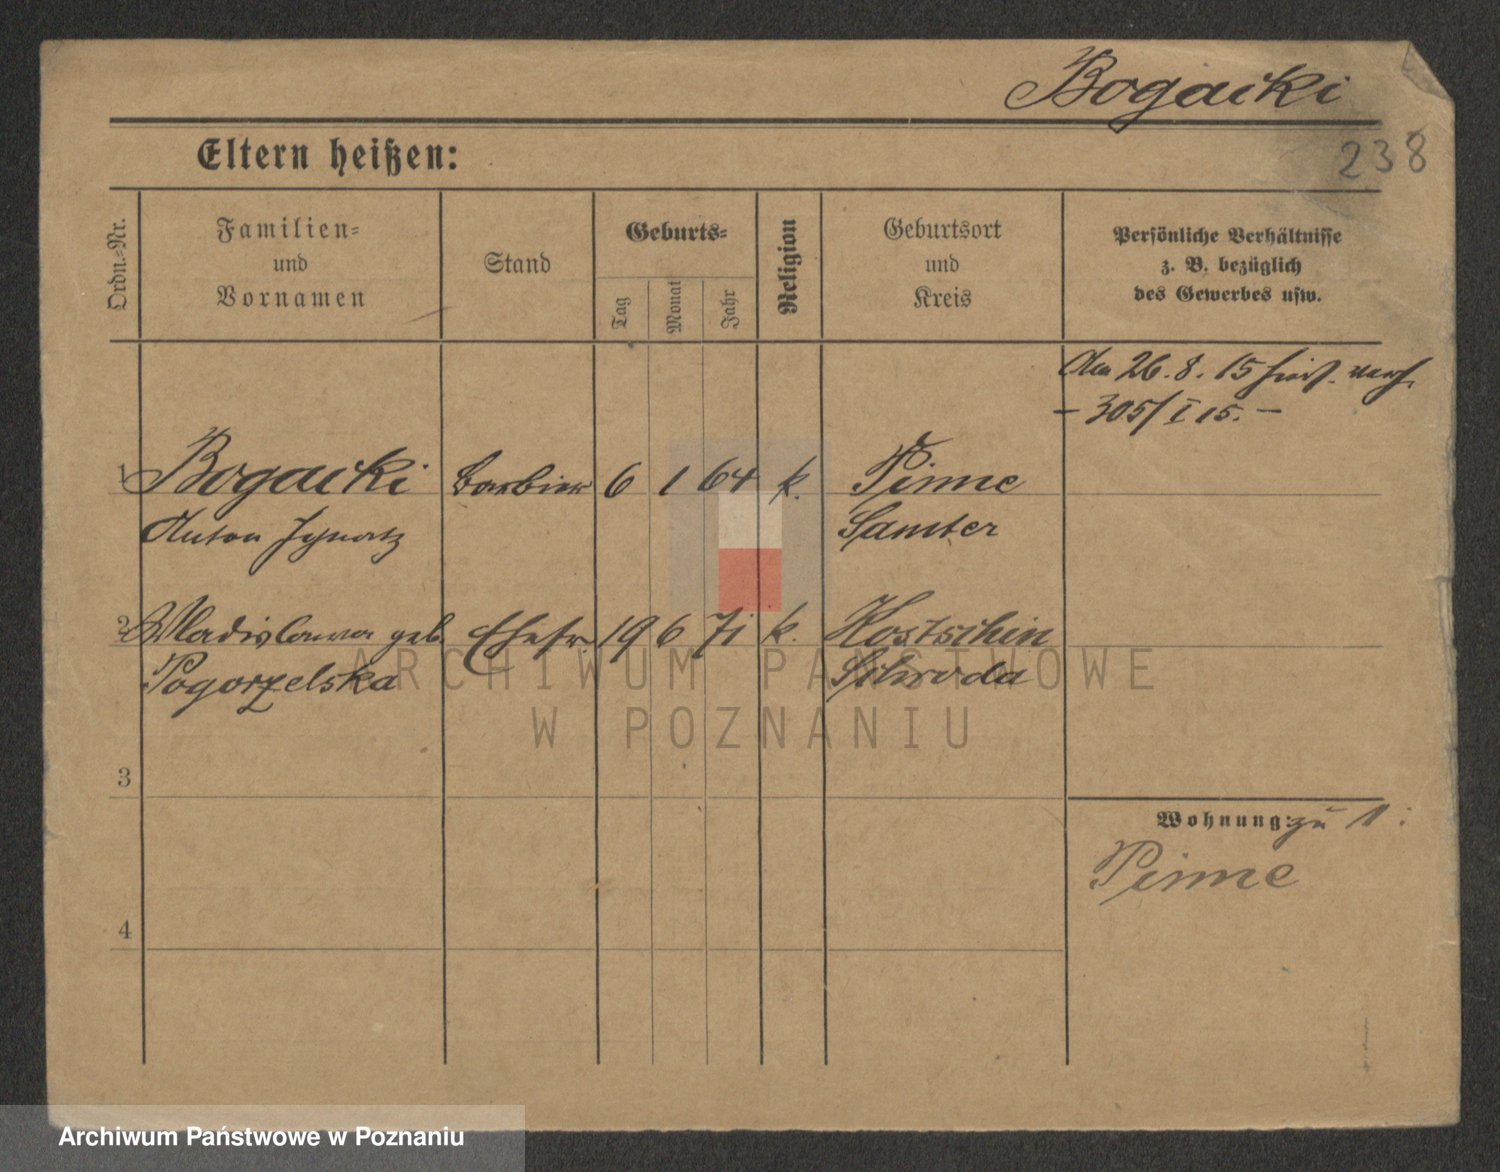 Bogacki
238
Eltern heißen:
Ordn.-Nr.
Familien-
und
Vornamen
Stand
Geburts-
Tag
Monat
Jahr
Religion
Geburtsort
und
Kreis
Persönliche Verhältnisse
z. B. bezüglich
des Gewerbes usw.
Am 26. 8. 15
– 305/I 15. –
1 Bogacki Barbier 6 1 64 k. Pinne
Anton Ignatz Samter
2 Wladislawa geb. Ehefr. 19 6 71 k. Kostschin
Pogorzelska Schroda
3
Wohnung: zu 1.
Pinne
4
ARCHIWUM PAŃSTWOWE
W POZNANIU
Archiwum Państwowe w Poznaniu